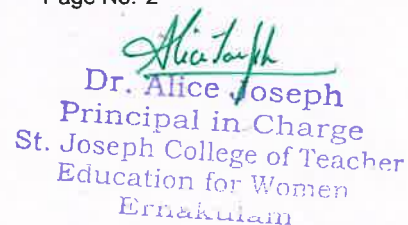 Page No. 2
Alice Joseph
Dr. Alice Joseph
Principal in Charge
St. Joseph College of Teacher
Education for Women
Ernakulam